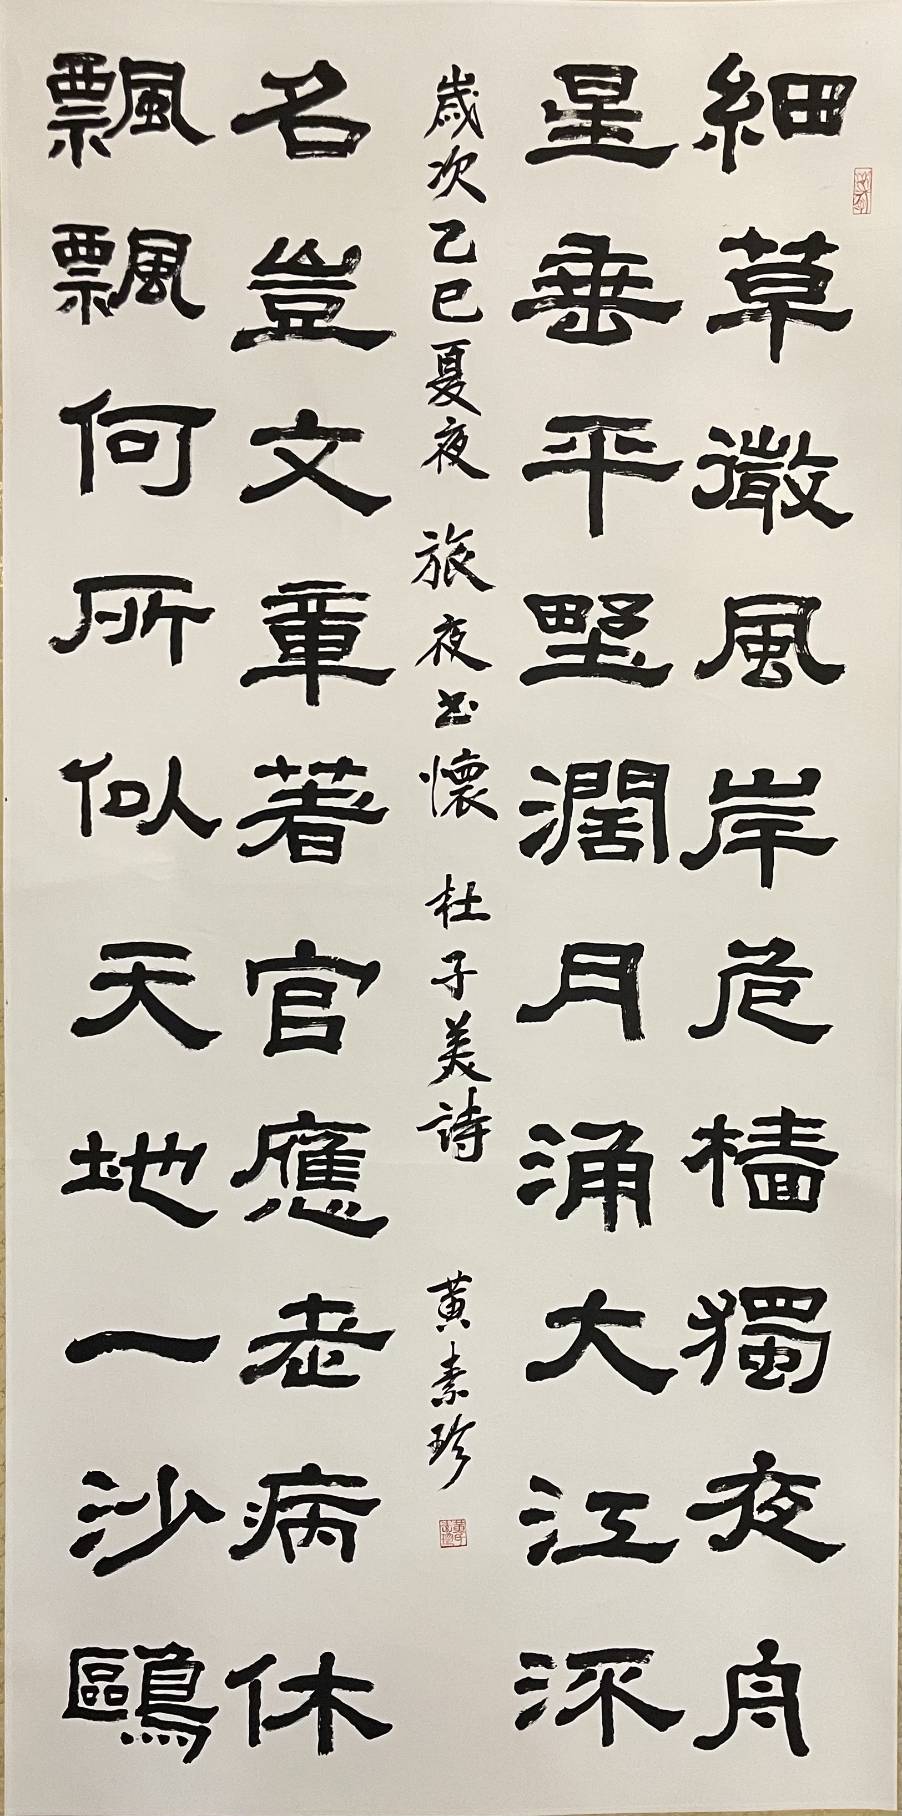 細草微風岸危檣獨夜舟
星垂平墅濶月涌大江流
歲次乙巳夏夜 旅夜书懷 杜子美詩 黃素珍
名豈文章著官應老病休
飄飄何所似天地一沙鷗